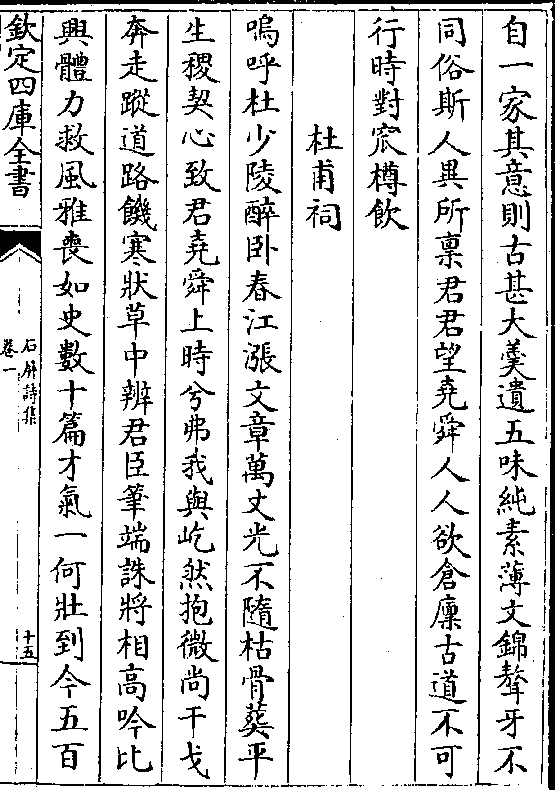 自一家其意則古甚大羹遺五味純素薄文錦聱牙不
同俗斯人異所禀君君望堯舜人人欲倉廩古道不可
行時對窊樽飲
杜甫祠
嗚呼杜少陵醉卧春江漲文章萬丈光不隨枯骨葬平
生稷契心致君堯舜上時兮弗我與屹然抱微尚干戈
奔走蹤道路饑寒狀草中辨君臣筆端誅將相高吟比
興體力救風雅喪如史數十篇才氣一何壯到今五百
欽定四庫全書
石屏詩集
卷一
十五